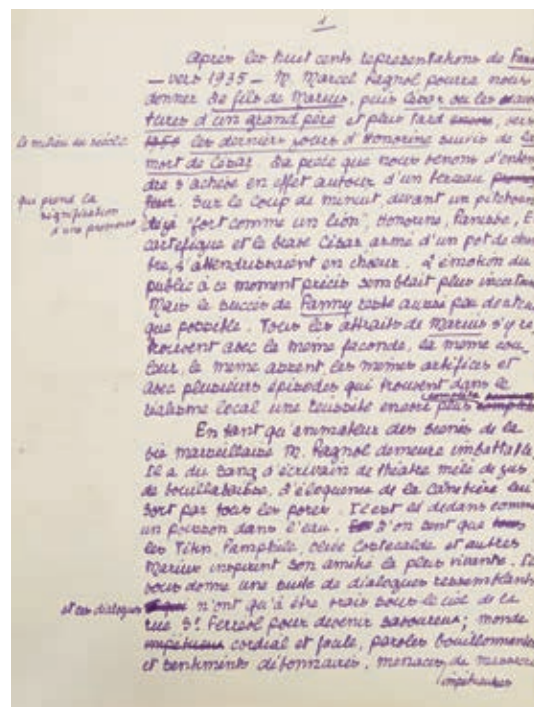 1
Après les huit cents représentations de Fan
— vers 1935 — M. Marcel Pagnol pourra nous
donner Le fils de Marius, puis César ou les
tures d'un grand père et plus tard encore, vers
le milieu du siècle
1950 les derniers jours d'Honorine suivis de la
mort de César. La pièce que nous venons d'enten
dre s'achève en effet autour d'un berceau
que prend la
signification
d'une promesse
Sur le coup de minuit, devant un pitchoun
déjà "fort comme un lion", Honorine, Panisse, E
cartefigue et le brave César armé d'un pot de cham
bre, s'attendrissaient en chœur. L'émotion du
public à ce moment précis semblait plus incertain
Mais le succès de Fanny reste aussi peu douteux
que possible. Tous les attraits de Marius s'y re
trouvent avec la même faconde, la même cou
leur le même accent, les mêmes artifices et
avec plusieurs épisodes qui trouvent dans le
réalisme local une réussite encore plus
complète
En tant qu'animateur des scènes de la
vie marseillaise M. Pagnol demeure imbattable.
Il a du sang d'écrivain de théâtre mêlé de jus
de bouillabaisse. L'éloquence de la Canebière lui
sort par tous les pores. Il est là dedans comme
un poisson dans l'eau. L'on sent que tous
les Titin, Pamphile, Olive Costecalde et autres
Marius inspirent son amitié la plus vivante. Il
nous donne une suite de dialogues ressemblants
et ces dialogues
n'ont qu'à être vrais sous le ciel de la
rue St Ferréol pour devenir savoureux; monde
impétueux cordial et facile, paroles bouillonnantes
et sentiments débonnaires, menaces de massacre
impétueuses